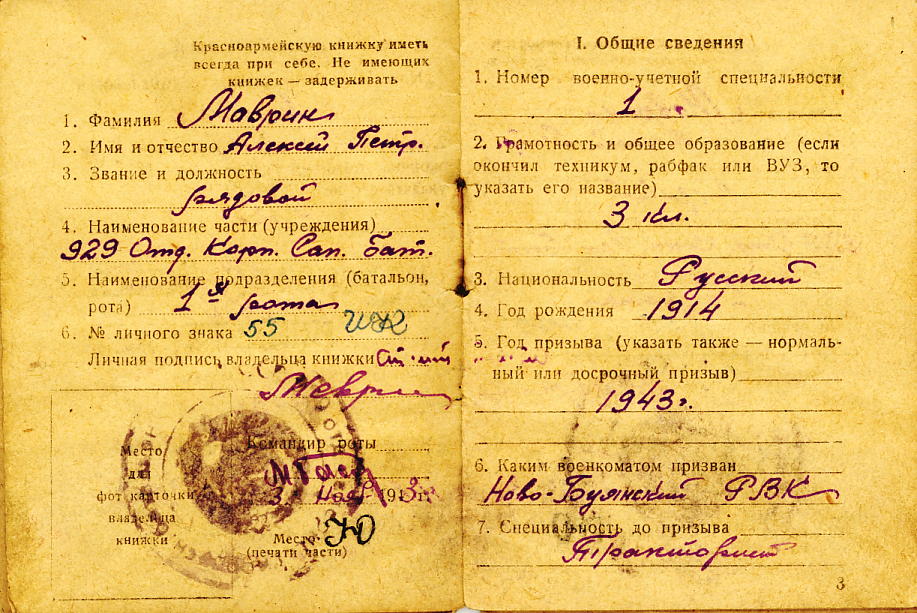 Красноармейскую книжку иметь
всегда при себе. Не имеющих
книжек — задерживать
1. Фамилия Маврин
2. Имя и отчество Алексей Петр.
3. Звание и должность
рядовой
4. Наименование части (учреждения)
929 Отд. Корп. Сап. бат.
5. Наименование подразделения (батальон,
рота) 1я рота
6. № личного знака 55
Личная подпись владельца книжки
Маврин
Командир роты
3 Нояб 1943 г.
Место
для
фот карточки
владельца
книжки
Место
(печати части)
I. Общие сведения
1. Номер военно-учетной специальности
1
2. Грамотность и общее образование (если
окончил техникум, рабфак или ВУЗ, то
указать его название)
3 кл.
3. Национальность Русский
4. Год рождения 1914
5. Год призыва (указать также — нормаль-
ный или досрочный призыв)
1943г.
6. Каким военкоматом призван
Ново-Буянский РВК
7. Специальность до призыва
Тракторист
3